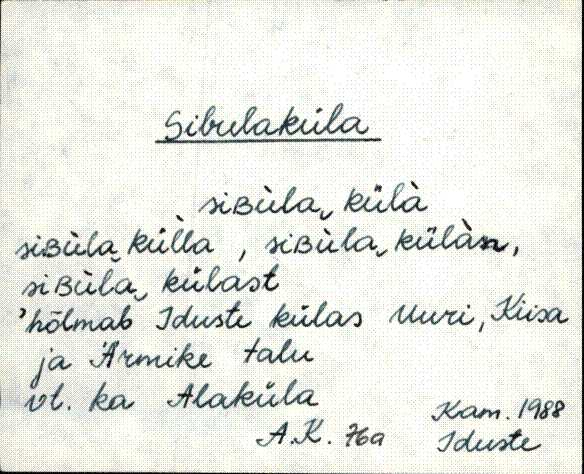 Sibulaküla
siʙùla‿külà
siʙùla‿kül̀la, siʙùla‿külàn,
siʙùla‿külast
'hõlmab Iduste külas Uuri, Kiisa
ja Ärmike talu
vt. ka Alaküla
Kam. 1988
A.K. 76a Iduste